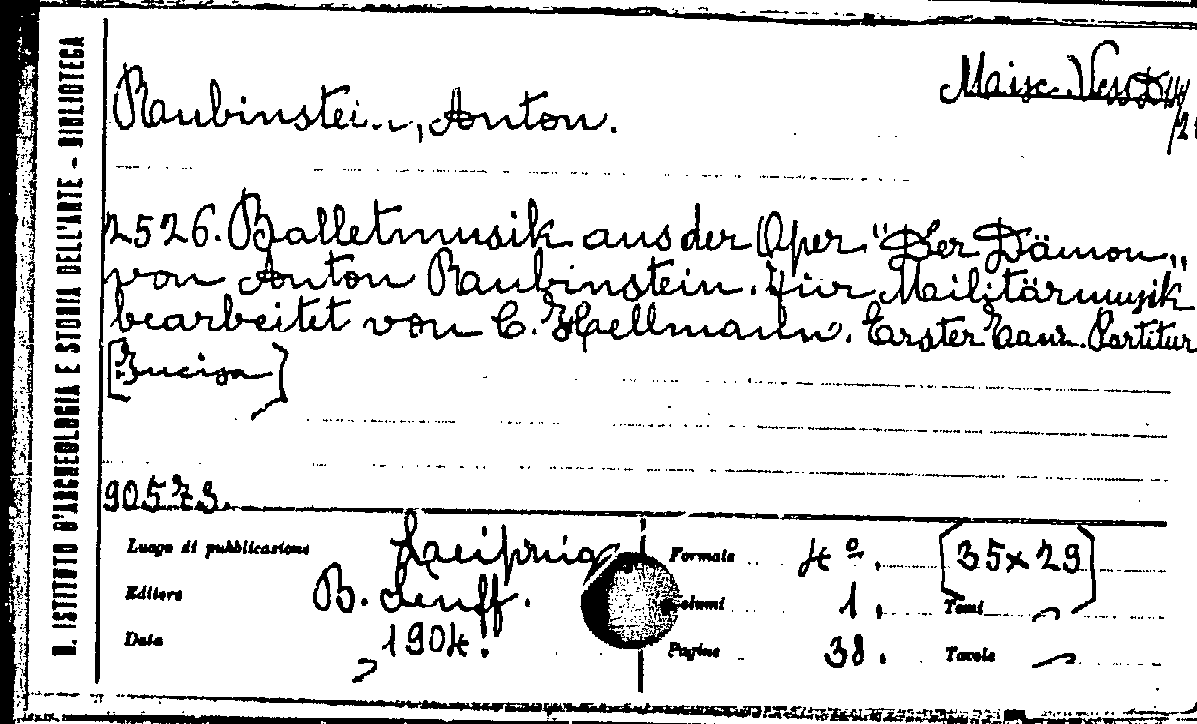 R. ISTITUTO D'ARCHEOLOGIA E STORIA DELL'ARTE - BIBLIOTECA
Rubinstein, Anton.
Misc.
2526. Balletmusik aus der Oper "Der Dämon"
von Anton Rubinstein. Für Militärmusik
bearbeitet von C. Hellmann. Erster Tanz. Partitur
[Incisa]
90573.
Luogo di pubblicazione Leipzig Formato 4º. [35x29]
Editore B. Senff. Volumi 1. Tomi
Data 1904. Pagine 38. Tavole